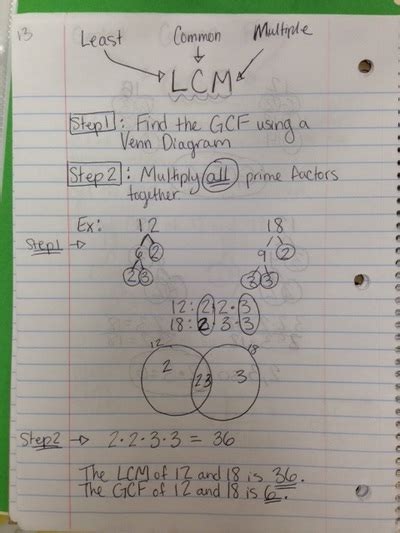 13
Least Common Multiple
LCM
Step 1: Find the GCF using a
Venn Diagram
Step 2: Multiply all prime factors
together
Ex: 12 18
Step 1 → 6 2 9 2
2 3 3 3
12: 2·2·3
18: 2·3·3
12 18
2 2 3 3
Step 2 → 2·2·3·3 = 36
The LCM of 12 and 18 is 36.
The GCF of 12 and 18 is 6.